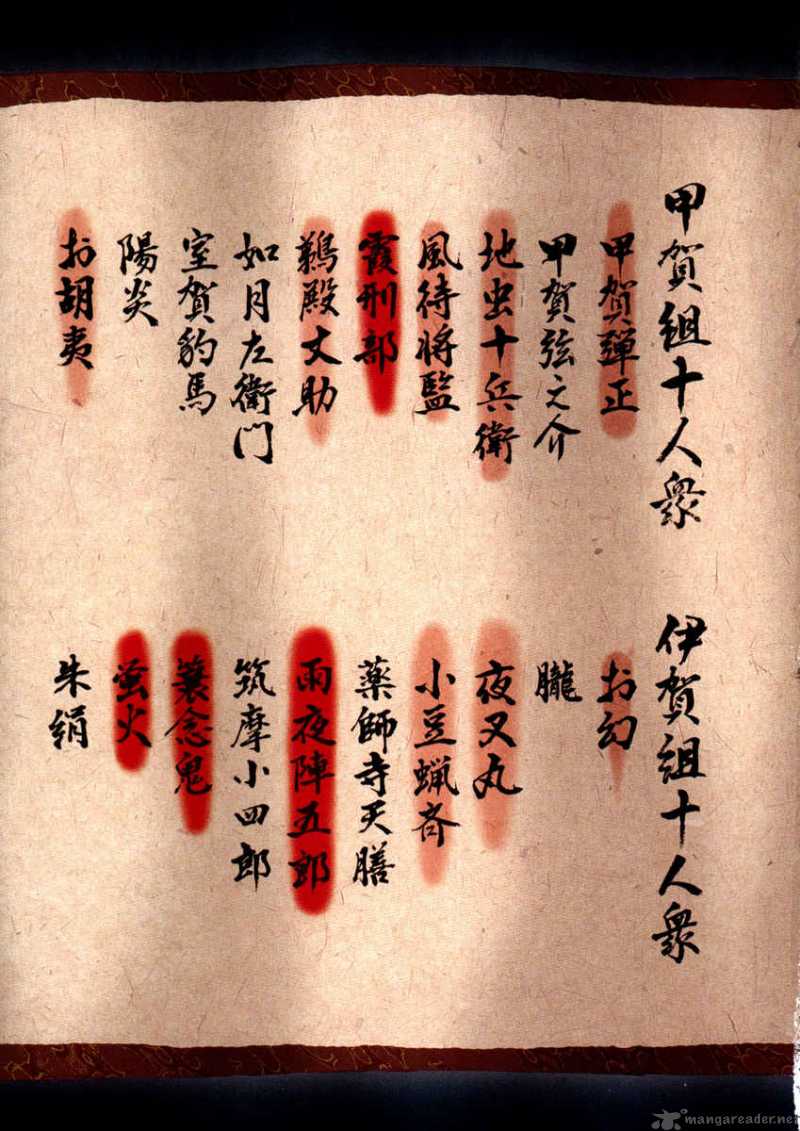 甲賀組十人衆
甲賀弾正
甲賀弦之介
地虫十兵衛
風待将監
霞刑部
鵜殿丈助
如月左衛門
室賀豹馬
陽炎
お胡夷
伊賀組十人衆
お幻
朧
夜叉丸
小豆蝋斉
薬師寺天膳
雨夜陣五郎
筑摩小四郎
蓑念鬼
蛍火
朱絹
mangareader.net